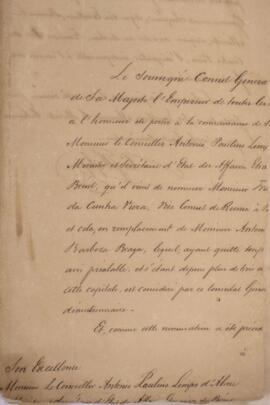 Le soussigné Consul Général
de Sa Majesté l'Empereur de toutes les
a l'honneur de porter à la connaissance de S
Monsieur le Conseiller Antonio Paulino Limp
Ministre et Secrétaire d'Etat des Affaires Etra
Brésil, qu'il vient de nommer Monsieur
da Cunha Vice Consul de Russie à
et cela, en remplacement de Monsieur Anton
Barboza Braga, lequel, ayant quitté
avis préalable, et s'étant depuis plus de
cette capitale, est considéré par ce Consulat Géné
démissionnaire.
Et, comme cette nomination a été
Son Excellence
Monsieur le Conseiller Antonio Paulino Limpo d'Abreu